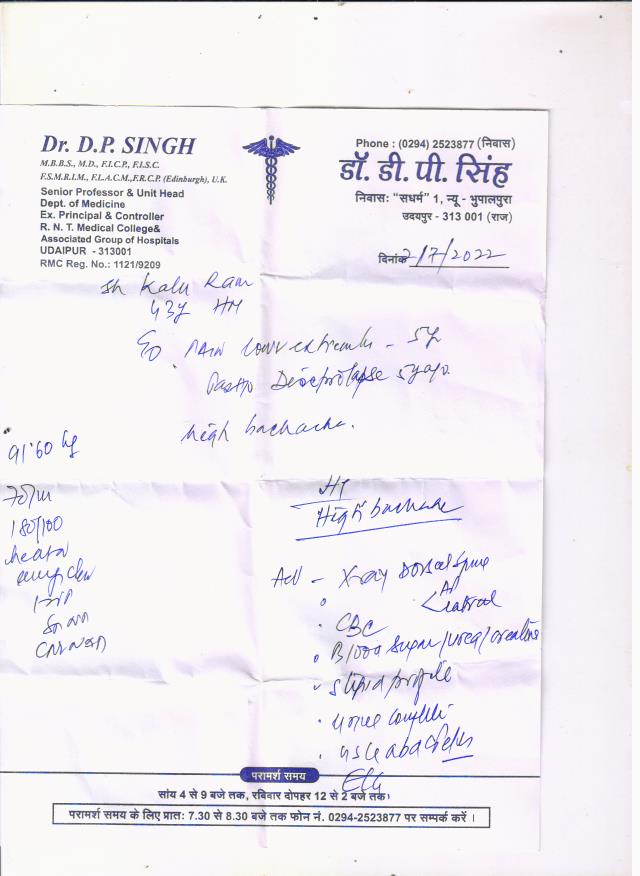 Dr. D.P. SINGH
M.B.B.S., M.D., F.I.C.P., F.I.S.C.
F.S.M.R.I.M., F.L.A.C.M.,F.R.C.P. (Edinburgh), U.K.
Senior Professor & Unit Head
Dept. of Medicine
Ex. Principal & Controller
R. N. T. Medical College&
Associated Group of Hospitals
UDAIPUR - 313001
RMC Reg. No.: 1121/9209
Phone : (0294) 2523877 (निवास)
डॉ. डी. पी. सिंह
निवासः "सधर्म" 1, न्यू - भुपालपुरा
उदयपुर - 313 001 (राज)
दिनांक 2/7/2022
Sh Kalu Ram
43y HM
Pain lower - 5y
5y ago
High backache.
91.60 kg
70/m
180/100
HT
High backache
Adv - X-ray Dorsal Spine
AP
Lateral
CBC
Blood Sugar/urea/creatinine
S lipid profile
ECG
परामर्श समय
सांय 4 से 9 बजे तक, रविवार दोपहर 12 से 2 बजे तक।
परामर्श समय के लिए प्रातः 7.30 से 8.30 बजे तक फोन नं. 0294-2523877 पर सम्पर्क करें ।